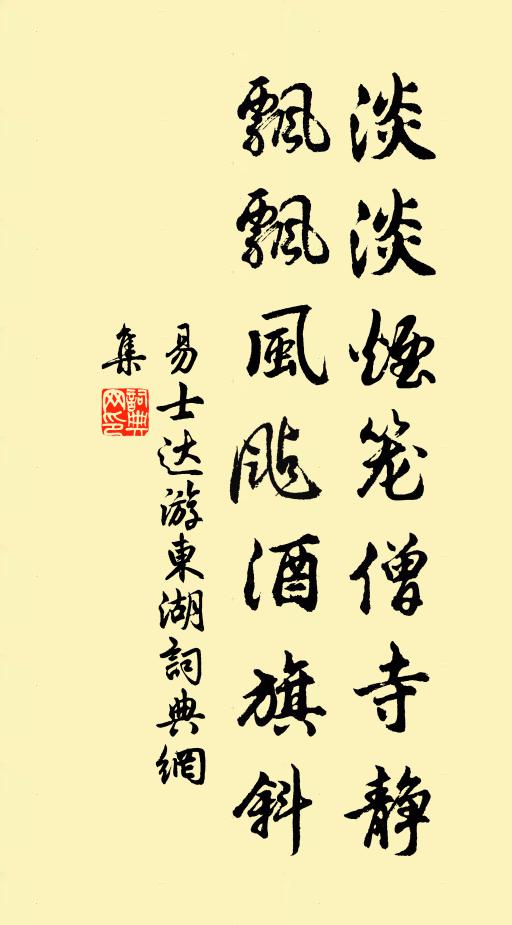 淡淡煙笼僧寺静
飄飄風颭酒旗斜
易士达游東湖詞典網
集
詞典网印